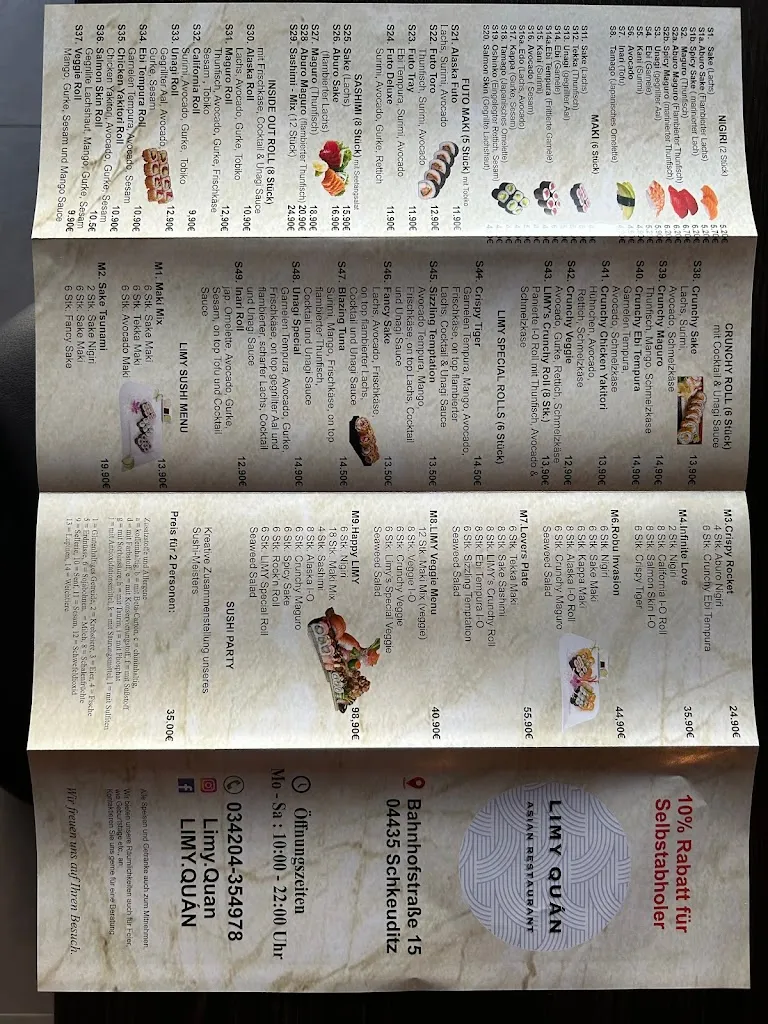 NIGIRI (2 Stück)
S1. Sake (Lachs)
S1a. Aburo Sake (Flambierter Lachs)
S1b Spicy Sake (marinierter Lach)
S2. Maguro (Thunfisch)
S2a. Aburo Maguro (Flambierter Thunfisch)
S2b Spicy Maguro (marinierter Thunfisch)
S3. Unagi (gegrillter Aal)
S4. Ebi (Garnele)
S5. Kani (Surimi)
S6. Avocado
S7. Inari (Tofu)
S8. Tamago (Japanisches Omelette)
MAKI (6 Stück)
S11. Sake (Lachs)
S12. Tekka (Thunfisch)
S13. Unagi (gegrillter Aal)
S14. Ebi (Garnele)
S14a. Ebi Tempura (Frittierte Garnele)
S15. Kani (Surimi)
S16. Avocado (Sesam)
S17. Kappa (Gurke, Sesam)
S18. Tamago (Japanisches Omelette)
S19. Oshinko (Eingelegter Rettich, Sesam)
S20. Salmon Skin (Gegrillte Lachshaut)
FUTO MAKI (5 Stück) mit Tobiko
S21. Alaska Futo 11.90€
Lachs, Surimi, Avocado
S22. Futo Toro 12.90€
Thunfisch, Surimi, Avocado
S23. Futo Tray 11.90€
Ebi Tempura, Surimi, Avocado
S24. Futo Deluxe 11.90€
Surimi, Avocado, Gurke, Rettich
SASHIMI (8 Stück) mit Seetangsalat
S25. Sake (Lachs) 15.90€
S26. Aburo Sake 16.90€
(flambierter Lachs)
S27. Maguro (Thunfisch) 18.90€
S28. Aburo Maguro (flambierter Thunfisch) 20.90€
S29. Sashimi - Mix (12 Stück) 24.90€
INSIDE OUT ROLL (8 Stück)
mit Frischkäse, Cocktail & Unagi Sauce
S30. Alaska Roll 10.90€
Lachs, Avocado, Gurke, Tobiko
S31. Maguro Roll 12.90€
Thunfisch, Avocado, Gurke, Frischkäse
Sesam, Tobiko
S32. California Roll 9.90€
Surimi, Avocado, Gurke, Tobiko
S33. Unagi Roll 12.90€
Gegrillter Aal, Avocado
Gurke, Sesam
S34. Ebi Tempura Roll 10.90€
Garnelen Tempura, Avocado, Sesam
S35. Chicken Yakitori Roll 10.90€
Chicken Yakitori, Avocado, Gurke, Sesam
S36. Salmon Skin Roll 10.5€
Gegrillte Lachshaut, Mango, Gurke, Sesam
S37. Veggie Roll 9.90€
Mango, Gurke, Sesam und Mango Sauce
CRUNCHY ROLL (6 Stück)
mit Cocktail & Unagi Sauce
S38. Crunchy Sake 13.90€
Lachs, Surimi,
Avocado, Schmelzkäse
S39 Crunchy Maguro 14.90€
Thunfisch, Mango, Schmelzkäse
S40. Crunchy Ebi Tempura 14.90€
Garnelen Tempura,
Avocado, Schmelzkäse
S41. Crunchy Chicken Yakitori 13.90€
Hühnchen, Avocado
S42. Crunchy Veggie 12.90€
Avocado, Gurke, Rettich, Schmelzkäse
S43. LIMY's Crunchy Roll (8 Stk.) 13.90€
Panierte I-O Roll mit Thunfisch, Avocado &
Schmelzkäse
LIMY SPECIAL ROLLS (6 Stück)
S44. Crispy Tiger 14.50€
Garnelen Tempura, Mango, Avocado,
Frischkäse, on top flambierter
Lachs, Cocktail & Unagi Sauce
S45. Sizzling Temptation 13.50€
Avocado Tempura, Mango,
Frischkäse on Topp Lachs, Cocktail
und Unagi Sauce
S46. Fancy Sake 13.50€
Lachs, Avocado, Frischkäse
on top flambierter Lachs,
Cocktail und Unagi Sauce
S47. Blazing Tuna 14.50€
Surimi, Mango, Frischkäse, on top
flambierter Thunfisch,
Cocktail und Unagi Sauce
S48. Unagi special 14.90€
Garnelen Tempura, Avocado, Gurke,
Frischkäse, on top gegrillter Aal und
flambierter, scharfer Lachs, Cocktail
und Unagi Sauce
S49. Inari Roll 12.90€
jap. Omelette, Avocado, Gurke,
Sesam, on top Tofu und Cocktail
Sauce
LIMY SUSHI MENU
M1. Maki Mix 13.90€
6 Stk. Saka Maki
6 Stk. Tekka Maki
6 Stk Avocado Maki
M2. Sake Tsunami 19.90€
2 Stk. Sake Nigiri
6 Stk. Sake Maki
6 Stk. Fancy Sake
M3. Crispy Rocket 24.90€
4 Stk. Aburo Nigiri
6 Stk. Crunchy Ebi Tempura
M4.Infinite Love 35.90€
2 Stk. Nigiri
8 Stk. California I-O Roll
8 Stk. Salmon Skin I-O
6 Stk. Crispy Tiger
M6.Robu Invasion 44,90€
6 Stk. Nigiri
6 Stk. Sake Maki
6 Stk. Kappa Maki
8 Stk. Alaska I-O Roll
6 Stk. Crunchy Maguro
Seaweed Salad
M7.Lovers Plate 55.90€
6 Stk. Tekka Maki
8 Stk. Sake Sashmi
8 Stk. LIMY's Crunchy Roll
8 Stk. Ebi Tempura I-O
6 Stk. Sizzling Temptation
Seaweed Salad
M8.LIMY Veggie Menu 40.90€
12 Stk. Maki Mix (veggie)
8 Stk. Veggie I-O
6 Stk. Crunchy Veggie
6 Stk. Limy's Special Veggie
Seaweed Salad
M9.Happy LIMY 98,90€
6 Stk. Nigiri
18 Stk. Maki Mix
4 Stk. Sashmi
8 Stk. Alaska I-O
6 Stk. Crunchy Maguro
6 Stk. Spicy Sake
6 Stk. Rock'n Roll
6 Stk. LIMY Special Roll
Seaweed Salad
SUSHI PARTY
Kreative Zusammenstellung unseres
Sushi-Meisters
Preis für 2 Personen: 35.00€
Zusatzstoffe und Allergene
10% Rabatt für
Selbstabholer
LIMY QUÁN
ASIAN RESTAURANT
Bahnhofstraße 15
04435 Schkeuditz
Öffnungszeiten
Mo - Sa : 10:00 - 22:00 Uhr
034204-354978
Limy.Quan
LIMY.QUÁN
Alle Speisen und Getränke auch zum Mitnehmen.
Wir bieten unsere Räumlichkeiten auch für Feier,
wie Geburtstage etc. an.
Kontaktieren Sie uns gerne für eine Beratung.
Wir freuen uns auf Ihren Besuch.